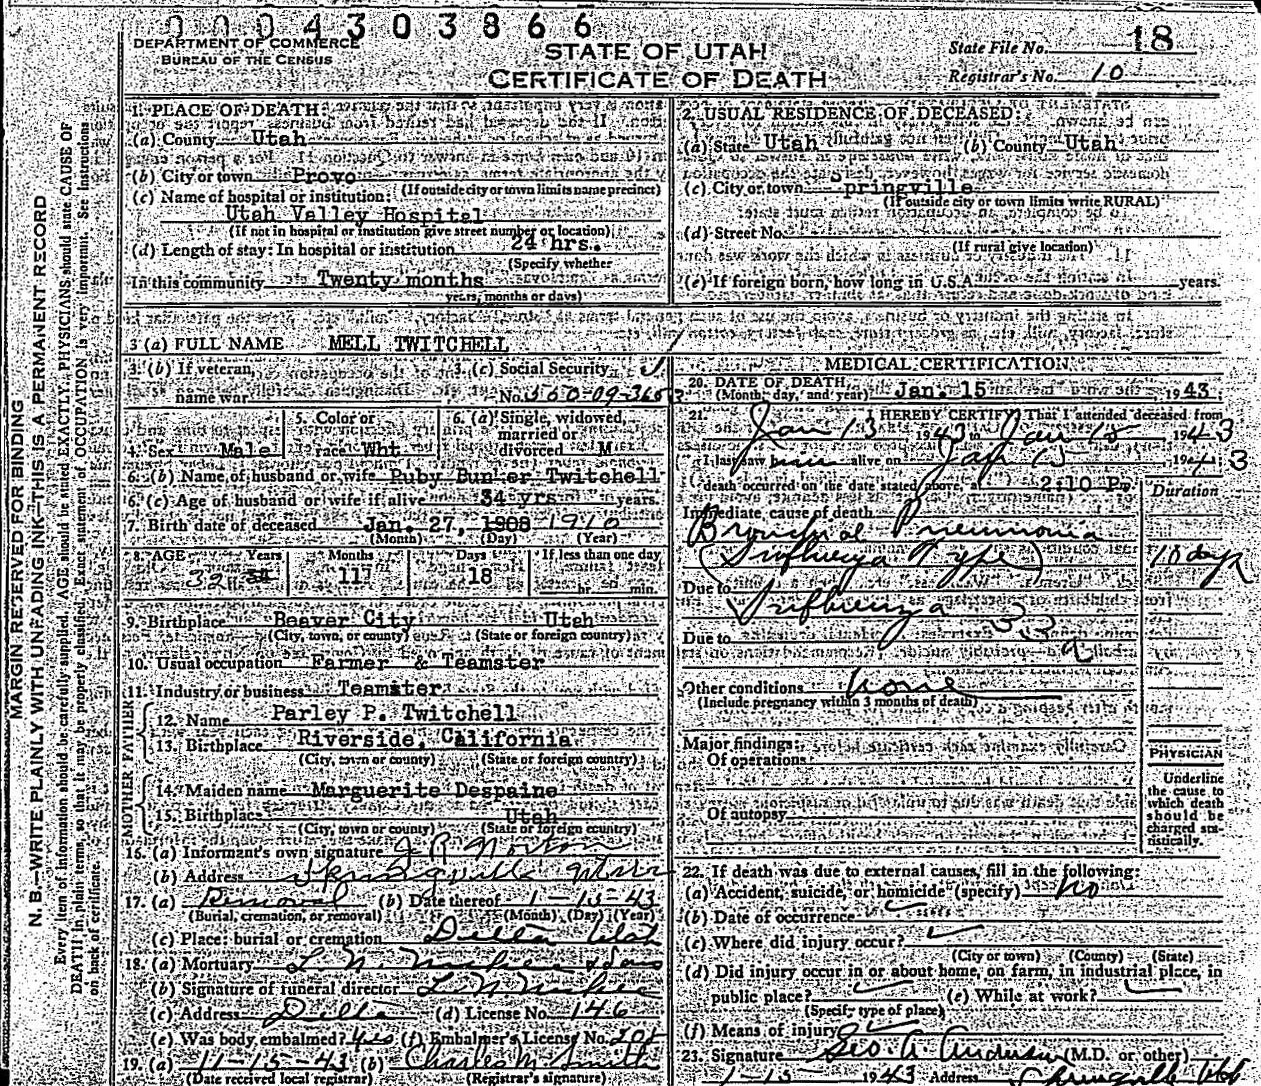 0004303866
DEPARTMENT OF COMMERCE
BUREAU OF THE CENSUS
STATE OF UTAH
CERTIFICATE OF DEATH
State File No. 18
Registrar's No. 10
MARGIN RESERVED FOR BINDING
N. B.—WRITE PLAINLY WITH UNFADING INK—THIS IS A PERMANENT RECORD
Every item of information should be carefully supplied. AGE should be stated EXACTLY. PHYSICIANS should state CAUSE OF
DEATH in plain terms, so that it may be properly classified. Exact statement of OCCUPATION is very important. See Instructions
on back of certificate.
1. PLACE OF DEATH:
(a) County Utah
(b) City or town Provo
(If outside city or town limits name precinct)
(c) Name of hospital or institution:
Utah Valley Hospital
(If not in hospital or institution give street number or location)
(d) Length of stay: In hospital or institution 24 hrs.
(Specify whether
In this community Twenty months
years, months or days)
2. USUAL RESIDENCE OF DECEASED:
(a) State Utah (b) County Utah
(c) City or town Springville
(If outside city or town limits write RURAL)
(d) Street No.
(If rural give location)
(e) If foreign born, how long in U.S.A. years.
3 (a) FULL NAME MELL TWITCHELL
3. (b) If veteran,
name war
3. (c) Social Security
No.
4. Sex Male
5. Color or
race Wht
6. (a) Single, widowed,
married or
divorced M
6. (b) Name of husband or wife Ruby Bunker Twitchell
6. (c) Age of husband or wife if alive 34 yrs years.
7. Birth date of deceased Jan. 27, 1908 1910
(Month) (Day) (Year)
8. AGE Years Months Days If less than one day
32 34 11 18 hr. min.
9. Birthplace Beaver City Utah
(City, town, or county) (State or foreign country)
10. Usual occupation Farmer & Teamster
11. Industry or business Teamster
FATHER
12. Name Parley P. Twitchell
13. Birthplace Riverside, California
(City, town or county) (State or foreign country)
MOTHER
14. Maiden name Marguerite Despaine
15. Birthplace Utah
(City, town or county) (State or foreign country)
16. (a) Informant's own signature J. R. Norton
(b) Address Springville Utah
17. (a) Removal (b) Date thereof 1-15-43
(Burial, cremation, or removal) (Month) (Day) (Year)
(c) Place: burial or cremation Delta Utah
18. (a) Mortuary
(b) Signature of funeral director
(c) Address Delta (d) License No. 146
(e) Was body embalmed? yes (f) Embalmer's License No. 201
19. (a) 11-15-43 (b) Charles M. Smith
(Date received local registrar) (Registrar's signature)
MEDICAL CERTIFICATION
20. DATE OF DEATH
(Month, day, and year) Jan. 15 1943
21. I HEREBY CERTIFY, That I attended deceased from
Jan 13 1943 to Jan 15 1943
I last saw him alive on Jan 15 1943
death occurred on the date stated above, at 2:10 Pm
Duration
Immediate cause of death
Bronchial Pneumonia
(Influenza Type) 10 days
Due to Influenza
33
a
Due to
Other conditions none
(Include pregnancy within 3 months of death)
Major findings:
Of operations
Of autopsy
PHYSICIAN
Underline
the cause to
which death
should be
charged sta-
tistically.
22. If death was due to external causes, fill in the following:
(a) Accident, suicide, or homicide (specify) no
(b) Date of occurrence
(c) Where did injury occur?
(City or town) (County) (State)
(d) Did injury occur in or about home, on farm, in industrial place, in
public place? (e) While at work?
(Specify type of place)
(f) Means of injury
23. Signature Geo. A. Anderson (M.D. or other)
1-15 1943 Address Springville Utah